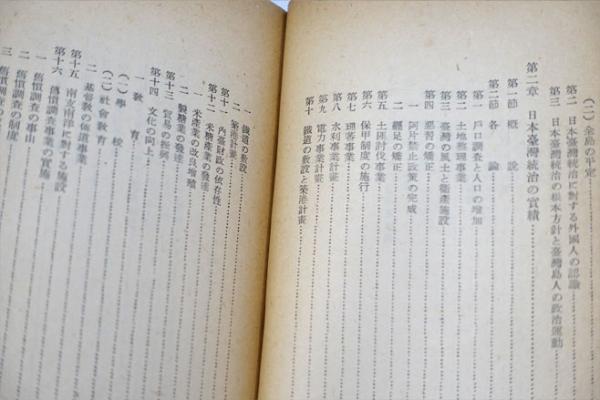 (二) 全島の平定
第二 日本臺灣統治に對する外國人の認識
第三 日本臺灣統治の根本方針と臺灣島人の政治運動
第二章 日本臺灣統治の實績
第一節 概説
第二節 各論
第一 戸口調査と人口の增加
第二 土地整理事業
第三 臺灣の風土と衞生施設
第四 惡習の矯正
一 阿片禁止政策の完成
二 纏足の矯正
第五 土匪討伐事業
第六 保甲制度の施行
第七 理蕃事業
第八 水利事業計畫
第九 電力事業計畫
第十 鐵道の敷設と築港計畫
一 鐵道の敷設
二 築港計畫
第十一 内臺財政の依存性
第十二 米糖產業の發達
一 米產業の改良增殖
二 製糖業の發達
第十三 貿易の振興
第十四 文化の向上
一 敎育
(一) 學校
(二) 社會敎育
二 基督敎の傳道事業
第十五 南支南洋に對する施設
第十六 舊慣調査事業の實施
一 舊慣調査の事由
二 舊慣調査の制度